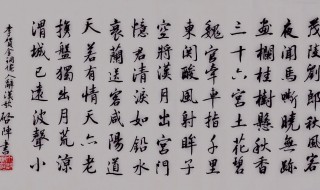 茂陵劉郎秋風客
夜聞馬嘶曉無跡
畫欄桂樹懸秋香
三十六宮土花碧
魏官牽車指千里
東關酸風射眸子
空將漢月出宮門
憶君清淚如鉛水
衰蘭送客咸陽道
天若有情天亦老
攜盤獨出月荒涼
渭城已遠波聲小
李賀金銅仙人辭漢歌
書